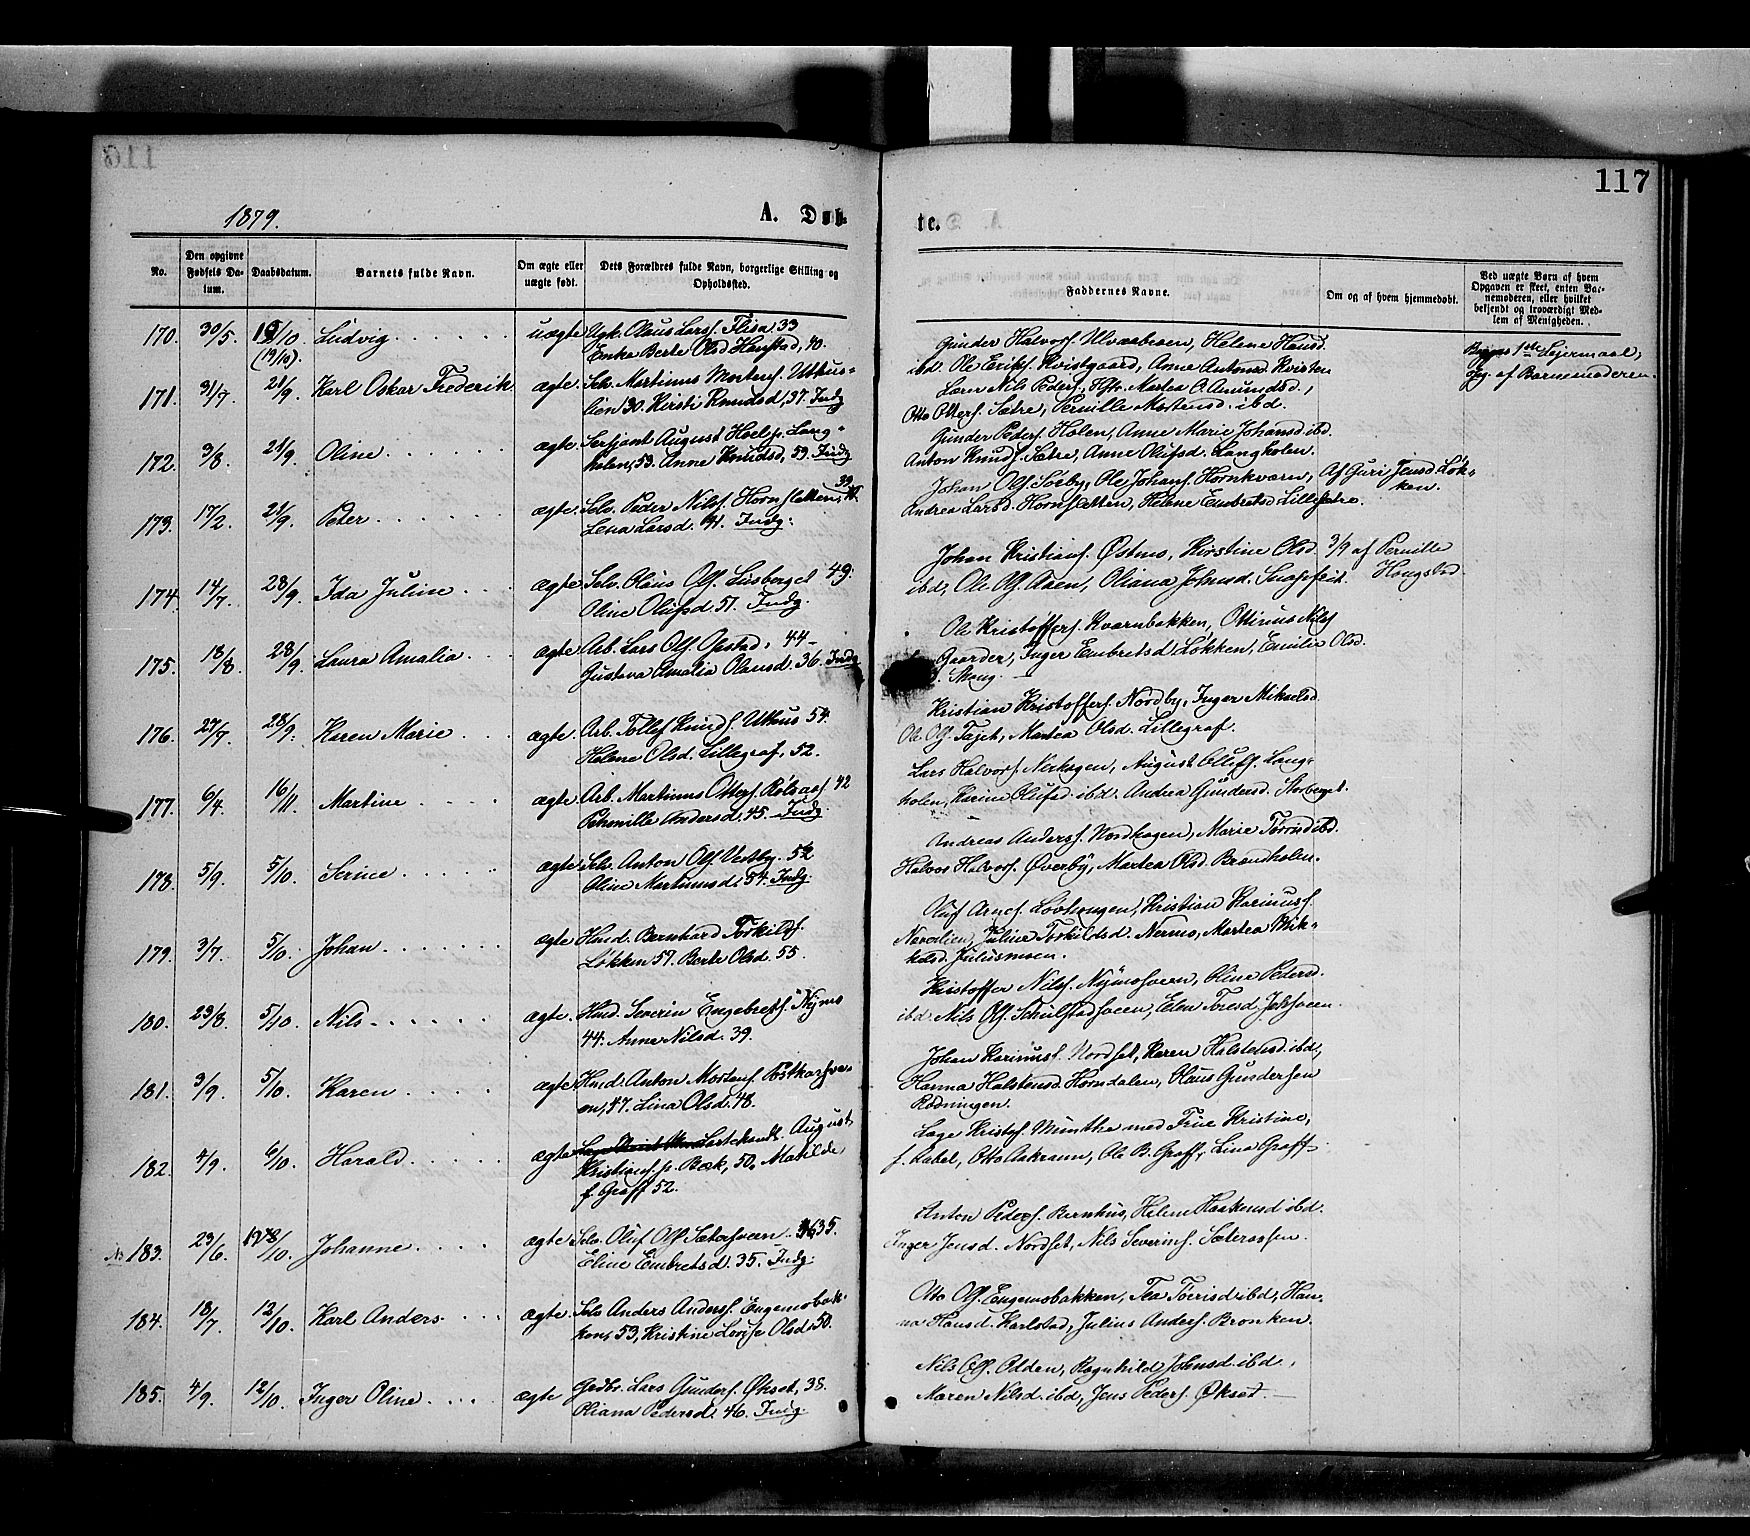 117
1879.
A. Døb-
te.
No.
Den opgivne Fødsels Da-tum.
Daabsdatum.
Barnets fulde Navn.
Om ægte eller uægte født.
Dets Forældres fulde Navn, borgerlige Stilling og Opholdssted.
Faddernes Navne.
Om og af hvem hjemmedøbt.
Ved uægte Børn af hvem Opgaven er skeet, enten Bar-nemoderen, eller hvilket bekjendt og troværdigt Med-lem af Menigheden.
170. 30/5. /10 (19/10). Ludvig uægte Ugk. Olaus Larss. Flisa 33
Enke Berte Olsd Hanstad, 40.
Gunder Halvors. Ulvaabraaen, Helene Hansd
ibd. Ole Eriks. Kvistgaard, Anne Antonsd Kvisten
1ste Lejermaal,
Opg. af Barnemoderen.
171. 31/7. 21/9. Karl Oskar Frederik ægte. Selv. Martinus Mortens. Uthus-
lien 30. Kirsti Knudsd, 37. Indg
Lærer Nils Peders., Hst. Martea A. Amundsd.,
Otto Otters. Sætre, Pernille Mortensd. ibd.
172. 3/8. 21/9. Oline ægte. Serjant August Hoel p. Lang-
holen, 53. Anne Knudsd, 53. Indg
Gunder Peders. Holen, Anne Marie Johansd ibd.
Anton Knuds. Sætre, Anne Olufsd. Langholen.
173. 17/2. 21/9. Peter ægte. Selv. Peder Nilss. Hornsletten, 39
Lena Larsd. 41. Indg.
Johan Ols. Sørby, Ole Johans. Hornkværn,
Andrea Larsd. Hornsletten, Helene Embretsd Lillesætre.
Af Guri Jensd Løk-
ken.
174. 14/7. 28/9. Ida Juline ægte Selv. Olaus Ols. Lusberget 49.
Oline Olufsd. 51. Indg.
Johan Kristians. Østmo, Kirstine Olsd
ibd, Ole Ols. Aaen, Oliana Johnsd. Snapseit.
3/9 af Pernille
Haugstad.
175. 18/8. 28/9. Laura Amalia ægte Arb. Lars Ols. Opstad, 44-
Gustava Amalia Olausd. 36. Indg
Ole Kristoffers. Kværnbakken, Ottinus Nilss
Gaarder, Inger Embretsd Løkken, Emilie Olsd.
Skaug.
176. 27/7. 28/9. Karen Marie ægte. Arb. Tollef Knuds. Uthus 54.
Helene Olsd. Lillegraf, 52.
Kristian Kristoffers. Nordby, Inger Mikaelsd
Ole Ols. Fajet, Martea Olsd. Lillegraf.
177. 6/4. 16/11. Martine ægte. Arb. Martinus Otters. Rølsaas 42
Petronille Andersd. 45. Indg.
Lars Halvors. Nerhagen, August Olufs. Lang-
holen, Karine Olufsd. ibd. Andrea Gundersd. Storberget.
178. 5/9. 5/10. Serine ægte Selv. Anton Ols. Vestby. 52
Oline Martinusd. 54. Indg.
Andreas Anders. Nordhagen, Marie Torrisd ibd.
Halvor Halvors. Øverby, Martea Olsd. Brændholen.
179. 3/7. 5/10. Johan ægte Hmd. Bernhard Torkilds.
Løkken 57. Berte Olsd. 55.
Oluf Arnes. Løvhaugen, Kristian Karinuss.
Næverlien, Juline Torkildsd. Nermo, Martea Mik-
kelsd. Juliusmoen.
180. 23/8. 5/10. Nils ægte. Hmd. Severin Engebrets. Nymo
44. Anne Nilsd. 39.
Kristoffer Nilss. Nymosveen, Oline Pedersd.
ibd. Nils Ols. Schulstadsveen, Elen Toresd.
181. 3/9. 5/10. Karen ægte Hmd. Anton Mortens. Østkorsve-
en, 47. Lina Olsd. 48.
Johan Karinuss. Nordset, Karen Halstensd. ibd,
Hanna Halstensd. Horndalen, Olaus Gundersen
Rødningen.
182. 4/9. 6/10. Harald ægte Handl. August
Kristians. p. Bæk, 50, Matilde
f. Graff 52.
Læge Kristof. Munthe med Frue Kristine,
f. Rabel, Otto Aakrann, Ole B. Graff, Lina Graff
183. 23/6. 12/10. Johanne ægte Selv. Oluf Ols. Sætersveen. 35.
Eline Embretsd. 35. Indg.
Anton Peders. Bernhus, Helene Haakensd ibd.
Inger Jensd. Nordset, Nils Severins. Sæteraasen.
184. 18/7. 12/10. Karl Anders. ægte. Selv Anders Anders. Engemobak-
ken, 53, Kristine Lovise Olsd. 50.
Otto Ols. Engemobakken, Tea Torrisd ibd, Han-
na Hansd. Karlstad, Julius Anders. Bronken.
185. 4/9. 12/10. Inger Oline ægte Grdbr. Lars Gunders. Økset, 38.
Oliana Pedersd. 46. Indg.
Nils Ols. Odden, Ragnhild Johnsd. ibd,
Maren Nilsd. ibd, Jens Peders. Økset.